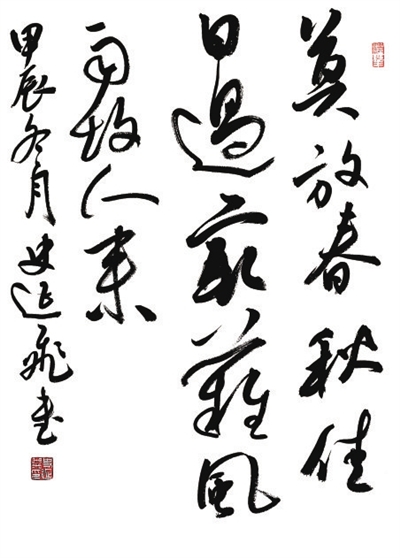 莫放春秋佳
日過最難風
雨故人來
甲辰冬月史延飛書